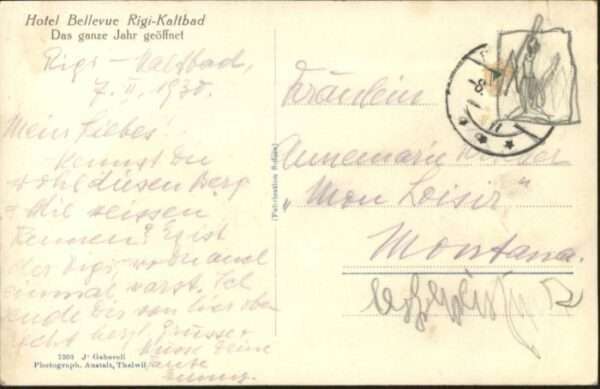 Hotel Bellevue Rigi-Kaltbad
Das ganze Jahr geöffnet
Rigi-Kaltbad,
7. II. 1930.
Mein Liebes!
Kennst Du
wohl diesen Berg
Rennen? Es ist
der Rigi, wo Du auch
einmal warst. Ich
sende Dir von hier oben
recht herzl. Grüsse &
Küsse Deine
Tante
7309 J. Gaberell
Photograph. Anstalt, Thalwil
(Fabrication Suisse)
-8.
II
Fräulein
Annemarie
„Mon Loisir"
Montana.